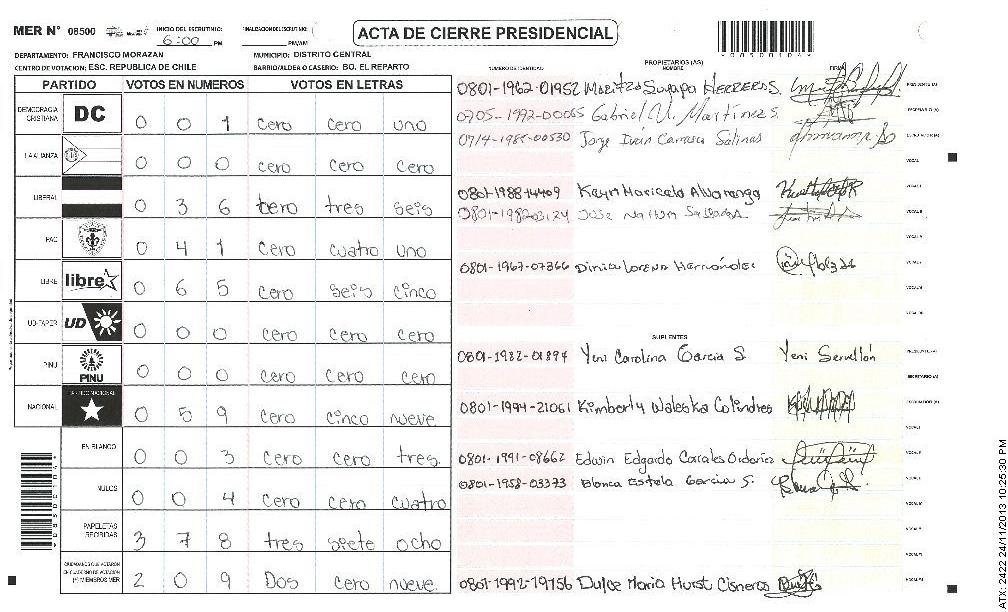 MER N° 08500 INICIO DEL ESCRUTINIO: 6:00 PM FINALIZACION ESCRUTINIO: PM/AM
ACTA DE CIERRE PRESIDENCIAL
DEPARTAMENTO: FRANCISCO MORAZAN MUNICIPIO: DISTRITO CENTRAL
CENTRO DE VOTACION: ESC. REPUBLICA DE CHILE BARRIO/ALDEA O CASERIO: BO. EL REPARTO
PARTIDO VOTOS EN NUMEROS VOTOS EN LETRAS
DEMOCRACIA CRISTIANA DC 0 0 1 cero cero uno
LA ALIANZA 0 0 0 cero cero cero
LIBERAL 0 3 6 cero tres seis
PAC 0 4 1 cero cuatro uno
LIBRE libre 0 6 5 cero seis cinco
UD-FAPER UD 0 0 0 cero cero cero
PINU PINU 0 0 0 cero cero cero
NACIONAL PARTIDO NACIONAL 0 5 9 cero cinco nueve
EN BLANCO 0 0 3 cero cero tres.
NULOS 0 0 4 cero cero cuatro
PAPELETAS RECIBIDAS 3 7 8 tres siete ocho
CIUDADANOS QUE VOTARON EN CUADERNO DE VOTACION (+) MIEMBROS MER 2 0 9 Dos cero nueve.
NUMERO DE IDENTIDAD PROPIETARIOS (AS) NOMBRE FIRMA
0801-1962-01952 Maritza Suyapa Herrera S. PRESIDENTE (A)
0705-1972-00065 Gabriel U. Martinez S. SECRETARIO (A)
0714-1985-00530 Jorge Iván Carrasco Salinas ESCRUTADOR (A)
VOCAL I
0801-1988-14409 Keyri Maricela Alvarenga
0801-1982-03124 Jose
0801-1967-07366 Dinia Lorena Hernández
SUPLENTES
0801-1982-01894 Yeni Carolina Garcia S. Yeni Servellón PRESIDENTE (A)
SECRETARIO (A)
0801-1994-21061 Kimberly Waleska Colindres ESCRUTADOR (A)
0801-1991-08662 Edwin Edgardo Corrales Ordoñez
0801-1958-03373 Blanca Estela Garcia S.
0801-1992-19756 Dulce Maria Hurst Cisneros
ATX-2422 24/11/2013 10:25:30 PM